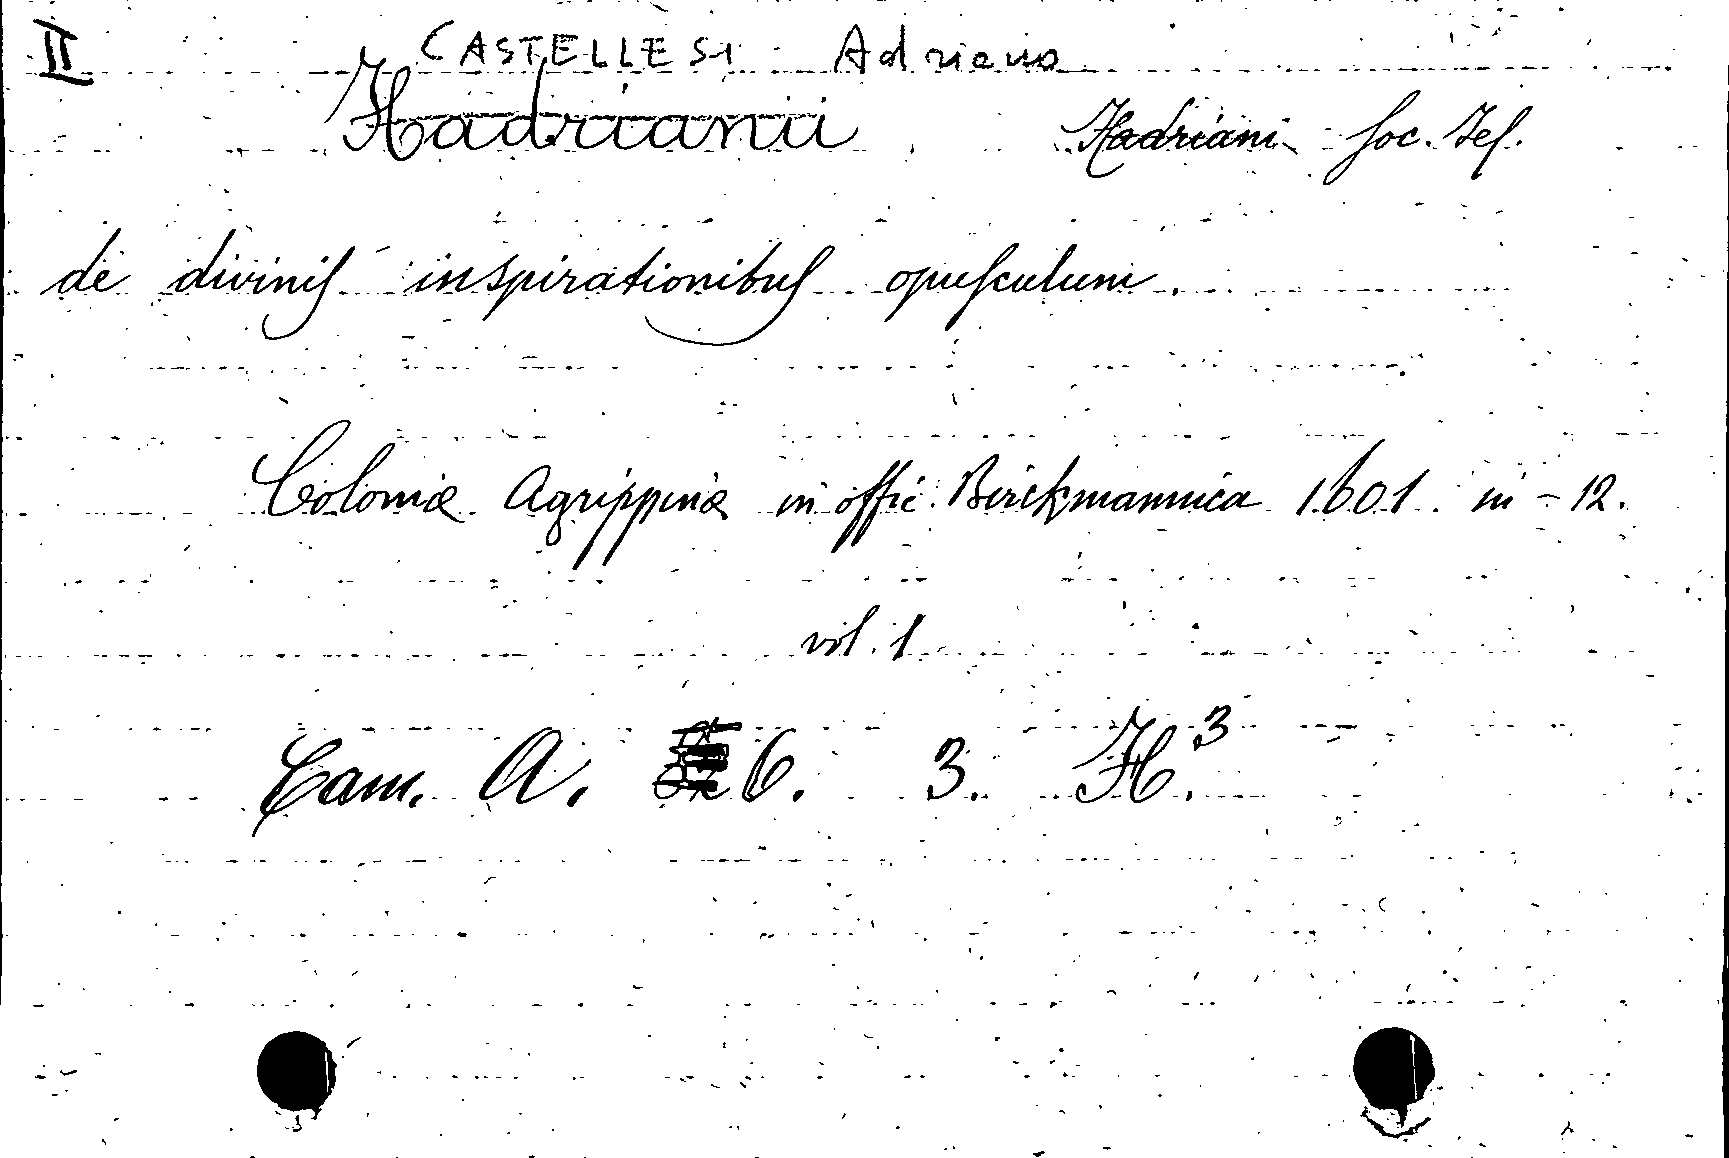 II CASTELLESI Adriano
Hadrianii Hadriani Soc. Jes.
de divinis inspirationibus opusculum.
Coloniæ Agrippinæ in offic. Birckmannica 1601. in-12.
vol. 1
Cam. A. 6. 3. H.³